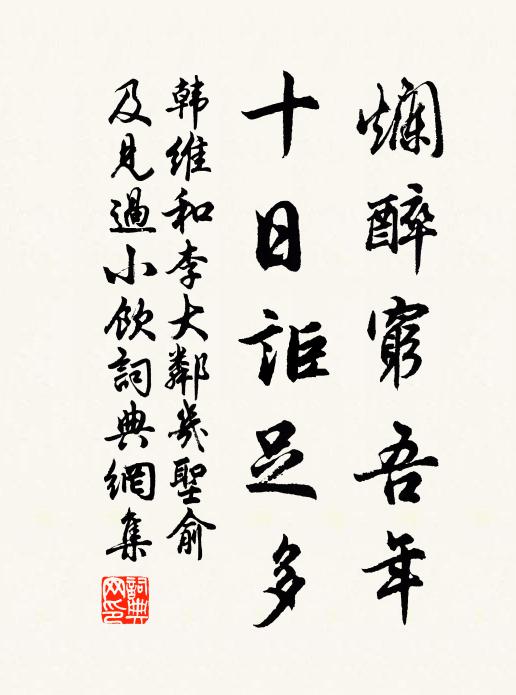 爛醉窮吾年
十日詎足多
韩維和李大鄰幾聖俞
及見過小飲詞典網集
詞典网印